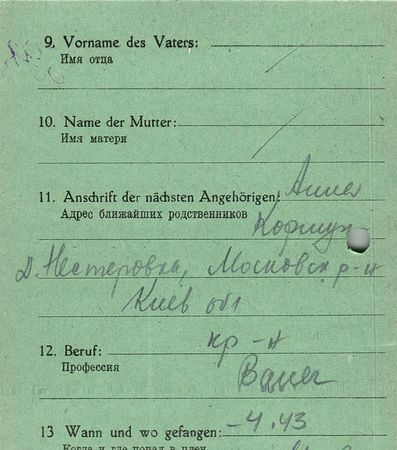 9. Vorname des Vaters:
Имя отца
10. Name der Mutter:
Имя матери
11. Anschrift der nächsten Angehörigen: Анна
Адрес ближайших родственников
д. Нестеровка, Московск р-н
Киев обл
12. Beruf: кр-н
Профессия
Bauer
13 Wann und wo gefangen: -4.43
Когда и где попал в плен